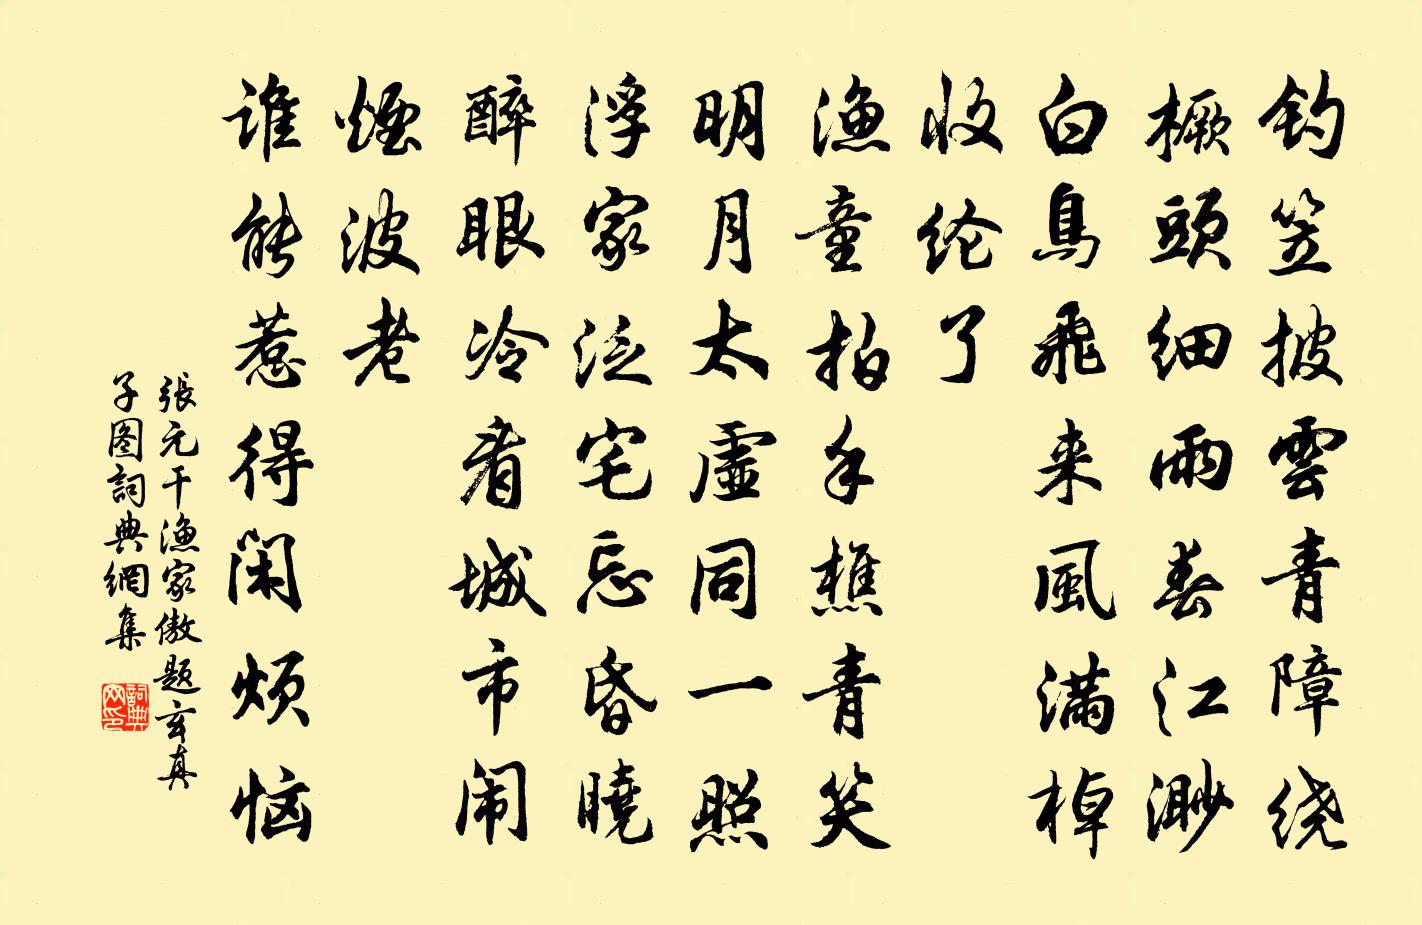 钓笠披雲青障绕
橛頭细雨春江渺
白鳥飛来風满棹
收纶了
渔童拍手樵青笑
明月太虚同一照
浮家泛宅忘昏曉
醉眼冷看城市闹
煙波老
谁能惹得闲烦恼
張元干渔家傲题玄真
子图詞典網集
詞典网印